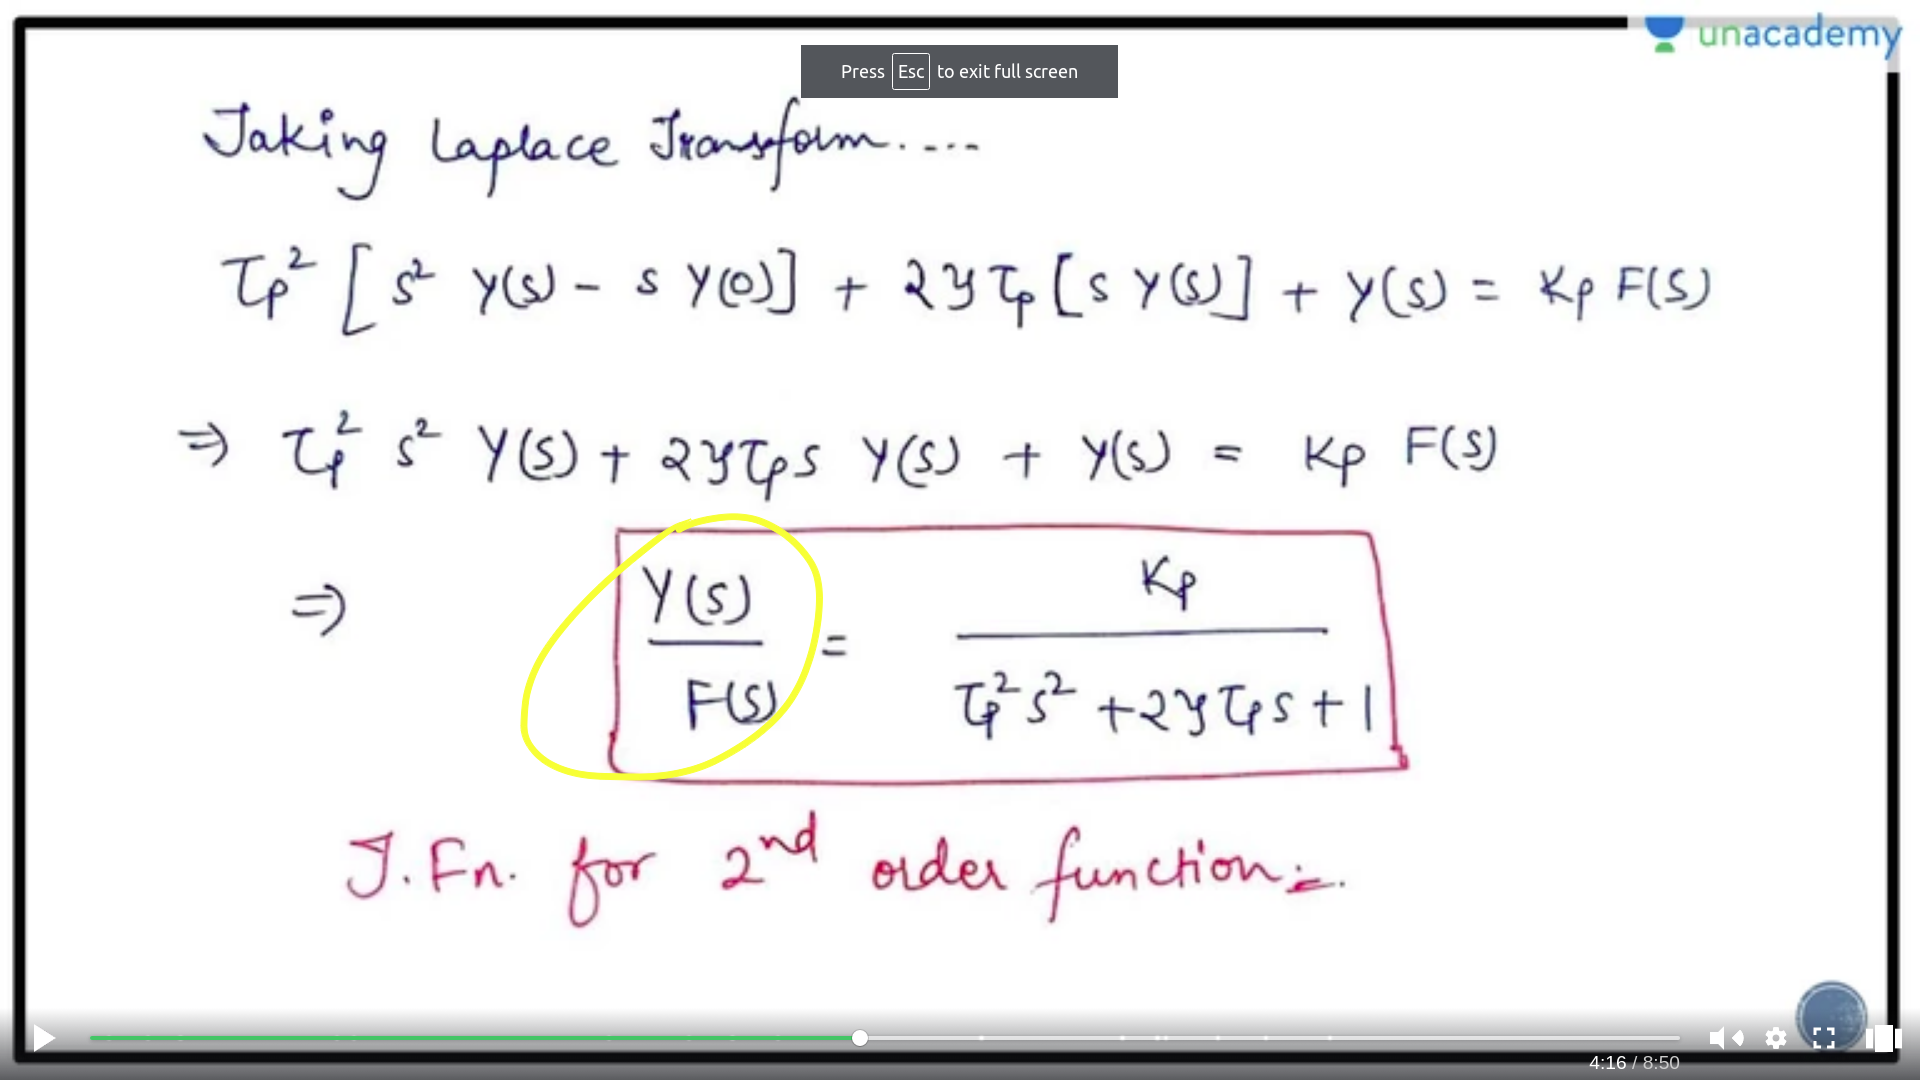 unacademy
Press Esc to exit full screen
Taking Laplace Transform.....
τp² [ s² Y(s) - s Y(0)] + 2ζτp [s Y(s)] + Y(s) = Kp F(s)
⇒ τp² s² Y(s) + 2ζτp s Y(s) + Y(s) = Kp F(s)
⇒ Y(s) / F(s) = Kp / τp² s² + 2ζτp s + 1
T. Fn. for 2nd order function:-.
4:16 / 8:50